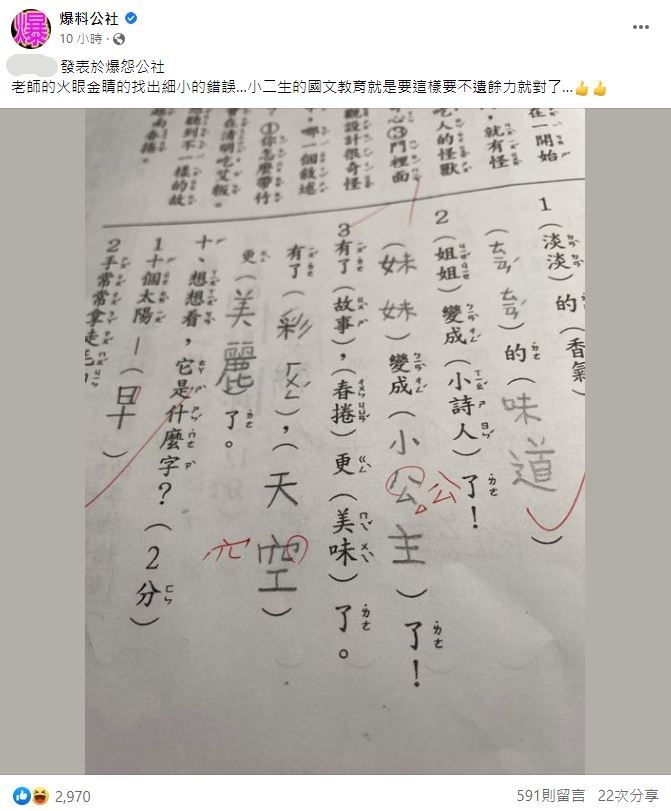 爆料公社
10 小時
發表於爆怨公社
老師的火眼金睛的找出細小的錯誤...小二生的國文教育就是要這樣要不遺餘力就對了...👍👍
在一開始
，就有怪
吃人的怪獸
心③門裡面
觀設計很奇怪
，哪一個敘述
？①你怎麼帶竹
會在清明吃艾粄。
聽到不一樣的故
春捲。
1（淡淡）的（香氣
）的（味道）
2（姐姐）變成（小詩人）了！
（妹妹）變成（小公主）了！
公
3有了（故事），（春捲）更（美味）了。
有了（彩ㄏㄨㄥˊ），（天空）
更（美麗）了。
十、想想看，它是什麼字？（2分）
1十個太陽－（日十）
2手常常拿走毛
2,970
591則留言 22次分享